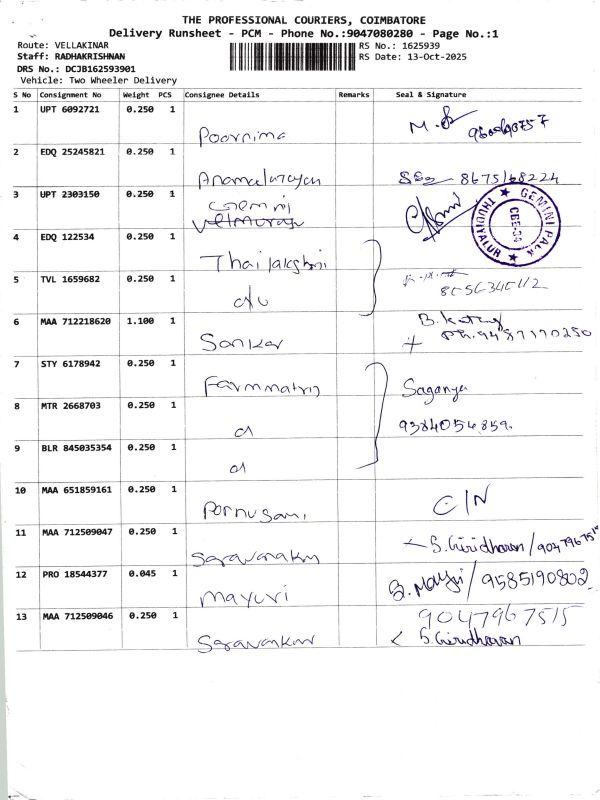 THE PROFESSIONAL COURIERS, COIMBATORE
Delivery Runsheet - PCM - Phone No.:9047080280 - Page No.:1
Route: VELLAKINAR
RS No.: 1625939
Staff: RADHAKRISHNAN
RS Date: 13-Oct-2025
DRS No.: DCJB162593901
Vehicle: Two Wheeler Delivery
S No Consignment No Weight PCS Consignee Details Remarks Seal & Signature
1 UPT 6092721 0.250 1 Poornima
2 EDQ 25245821 0.250 1 8675168224
3 UPT 2303150 0.250 1 Gemini
GEMINI PACK CBE-34 THUDIYALUR
4 EDQ 122534 0.250 1 Thailakshmi
5 TVL 1659682 0.250 1 do
6 MAA 712218620 1.100 1 Sankar Ph.9487170250
7 STY 6178942 0.250 1 Saganya
8 MTR 2668703 0.250 1 9384056859.
9 BLR 845035354 0.250 1
10 MAA 651859161 0.250 1 Ponnusami C/N
11 MAA 712509047 0.250 1 Saravanakm S.Giridharan/
12 PRO 18544377 0.045 1 mayuri S.Mayuri/9585190802
13 MAA 712509046 0.250 1 Saravankm 9047967515
S.Giridharan